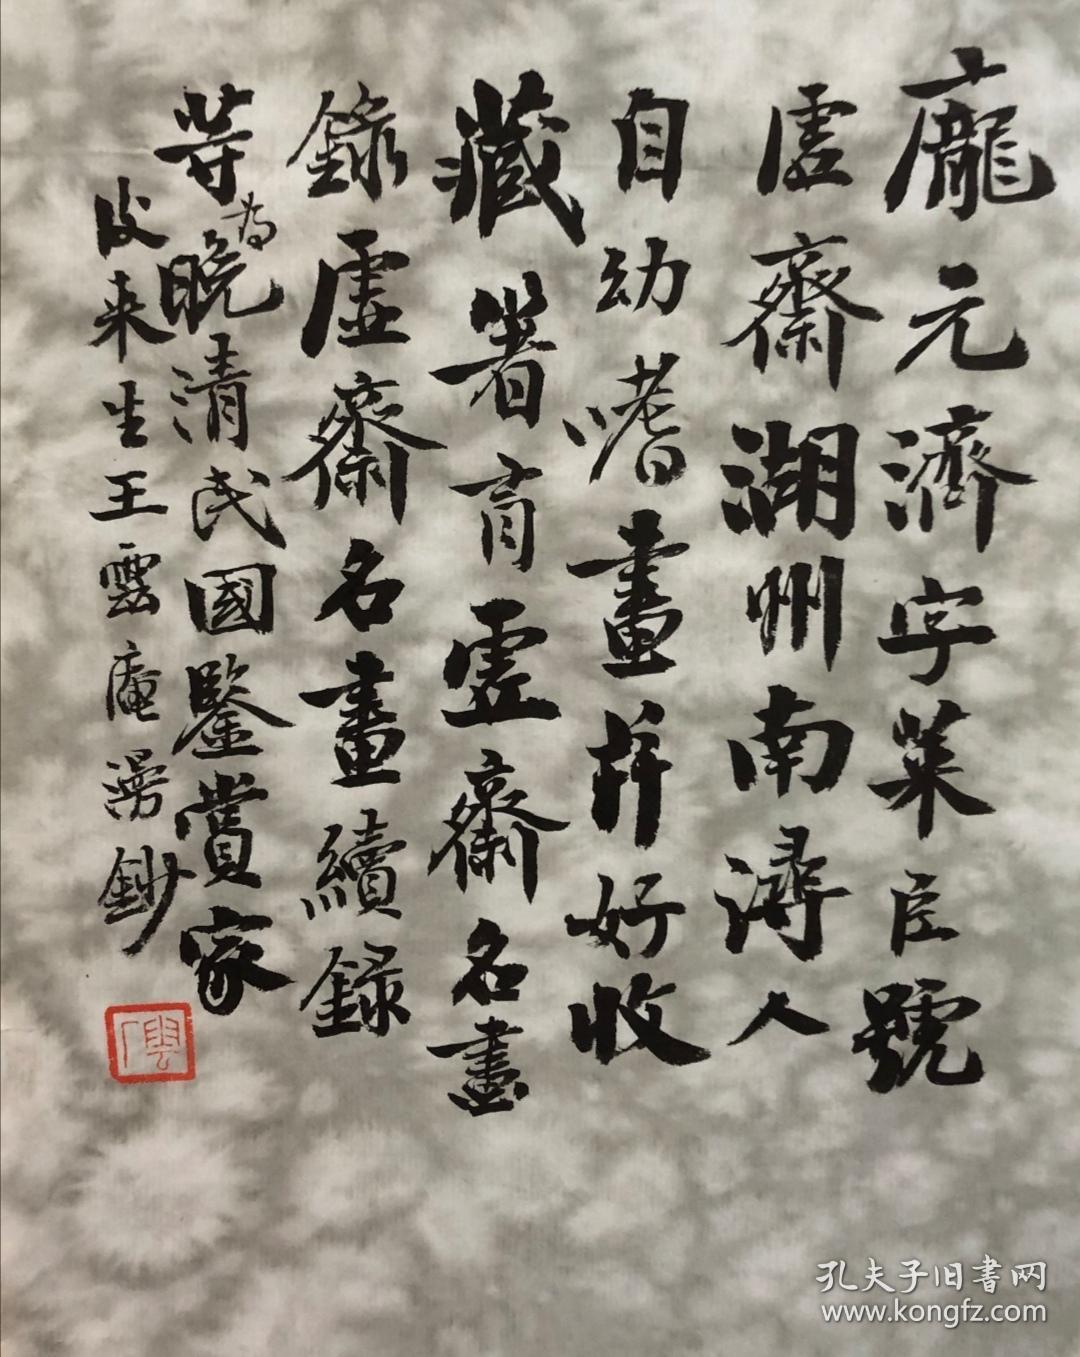 龐元濟字萊臣號
虛齋湖州南潯人
自幼嗜畫并好收
藏著有虛齋名畫
錄虛齋名畫續錄
等為晚清民國鑒賞家
後来生王雲庵漫鈔
孔夫子旧書网
www.kongfz.com